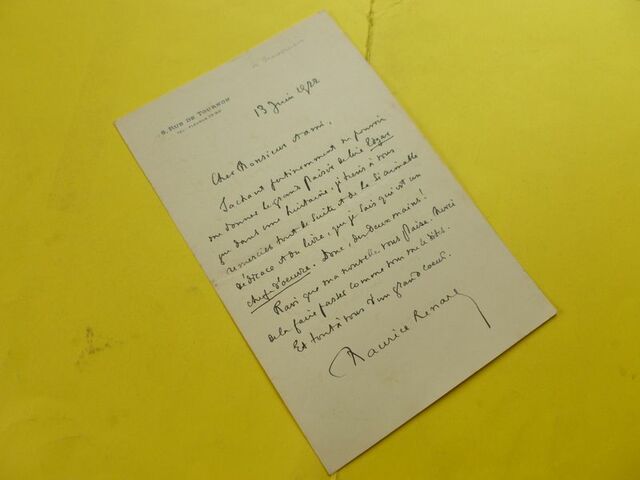 6, RUE DE TOURNON
13 Juin 1922
Cher Monsieur et ami,
Sachant pertinemment ne pouvoir
me donner le grand plaisir de lire Edgar
que dans une huitaine, je tiens à vous
remercier tout de suite et de la si aimable
dédicace et du livre, que je sais qui est un
chef-d'oeuvre. Donc, des deux mains !
Ravi que ma nouvelle vous plaise. Merci
de la faire passer comme vous me le dites.
Et tout à vous d'un grand coeur.
Maurice Renard